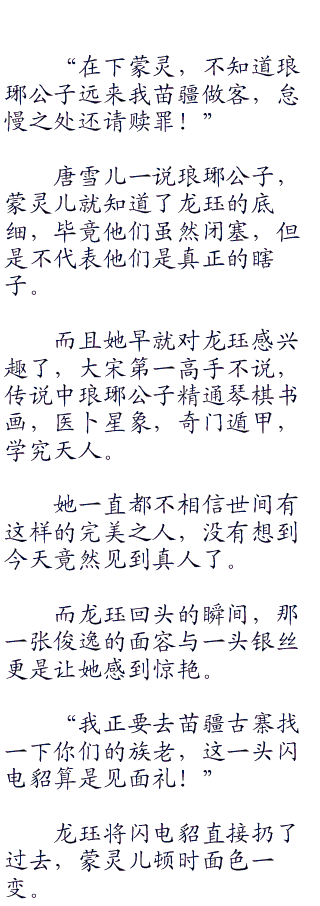 “在下蒙灵，不知道琅
琊公子远来我苗疆做客，怠
慢之处还请赎罪！”
唐雪儿一说琅琊公子，
蒙灵儿就知道了龙珏的底
细，毕竟他们虽然闭塞，但
是不代表他们是真正的瞎
子。
而且她早就对龙珏感兴
趣了，大宋第一高手不说，
传说中琅琊公子精通琴棋书
画，医卜星象，奇门遁甲，
学究天人。
她一直都不相信世间有
这样的完美之人，没有想到
今天竟然见到真人了。
而龙珏回头的瞬间，那
一张俊逸的面容与一头银丝
更是让她感到惊艳。
“我正要去苗疆古寨找
一下你们的族老，这一头闪
电貂算是见面礼！”
龙珏将闪电貂直接扔了
过去，蒙灵儿顿时面色一
变。